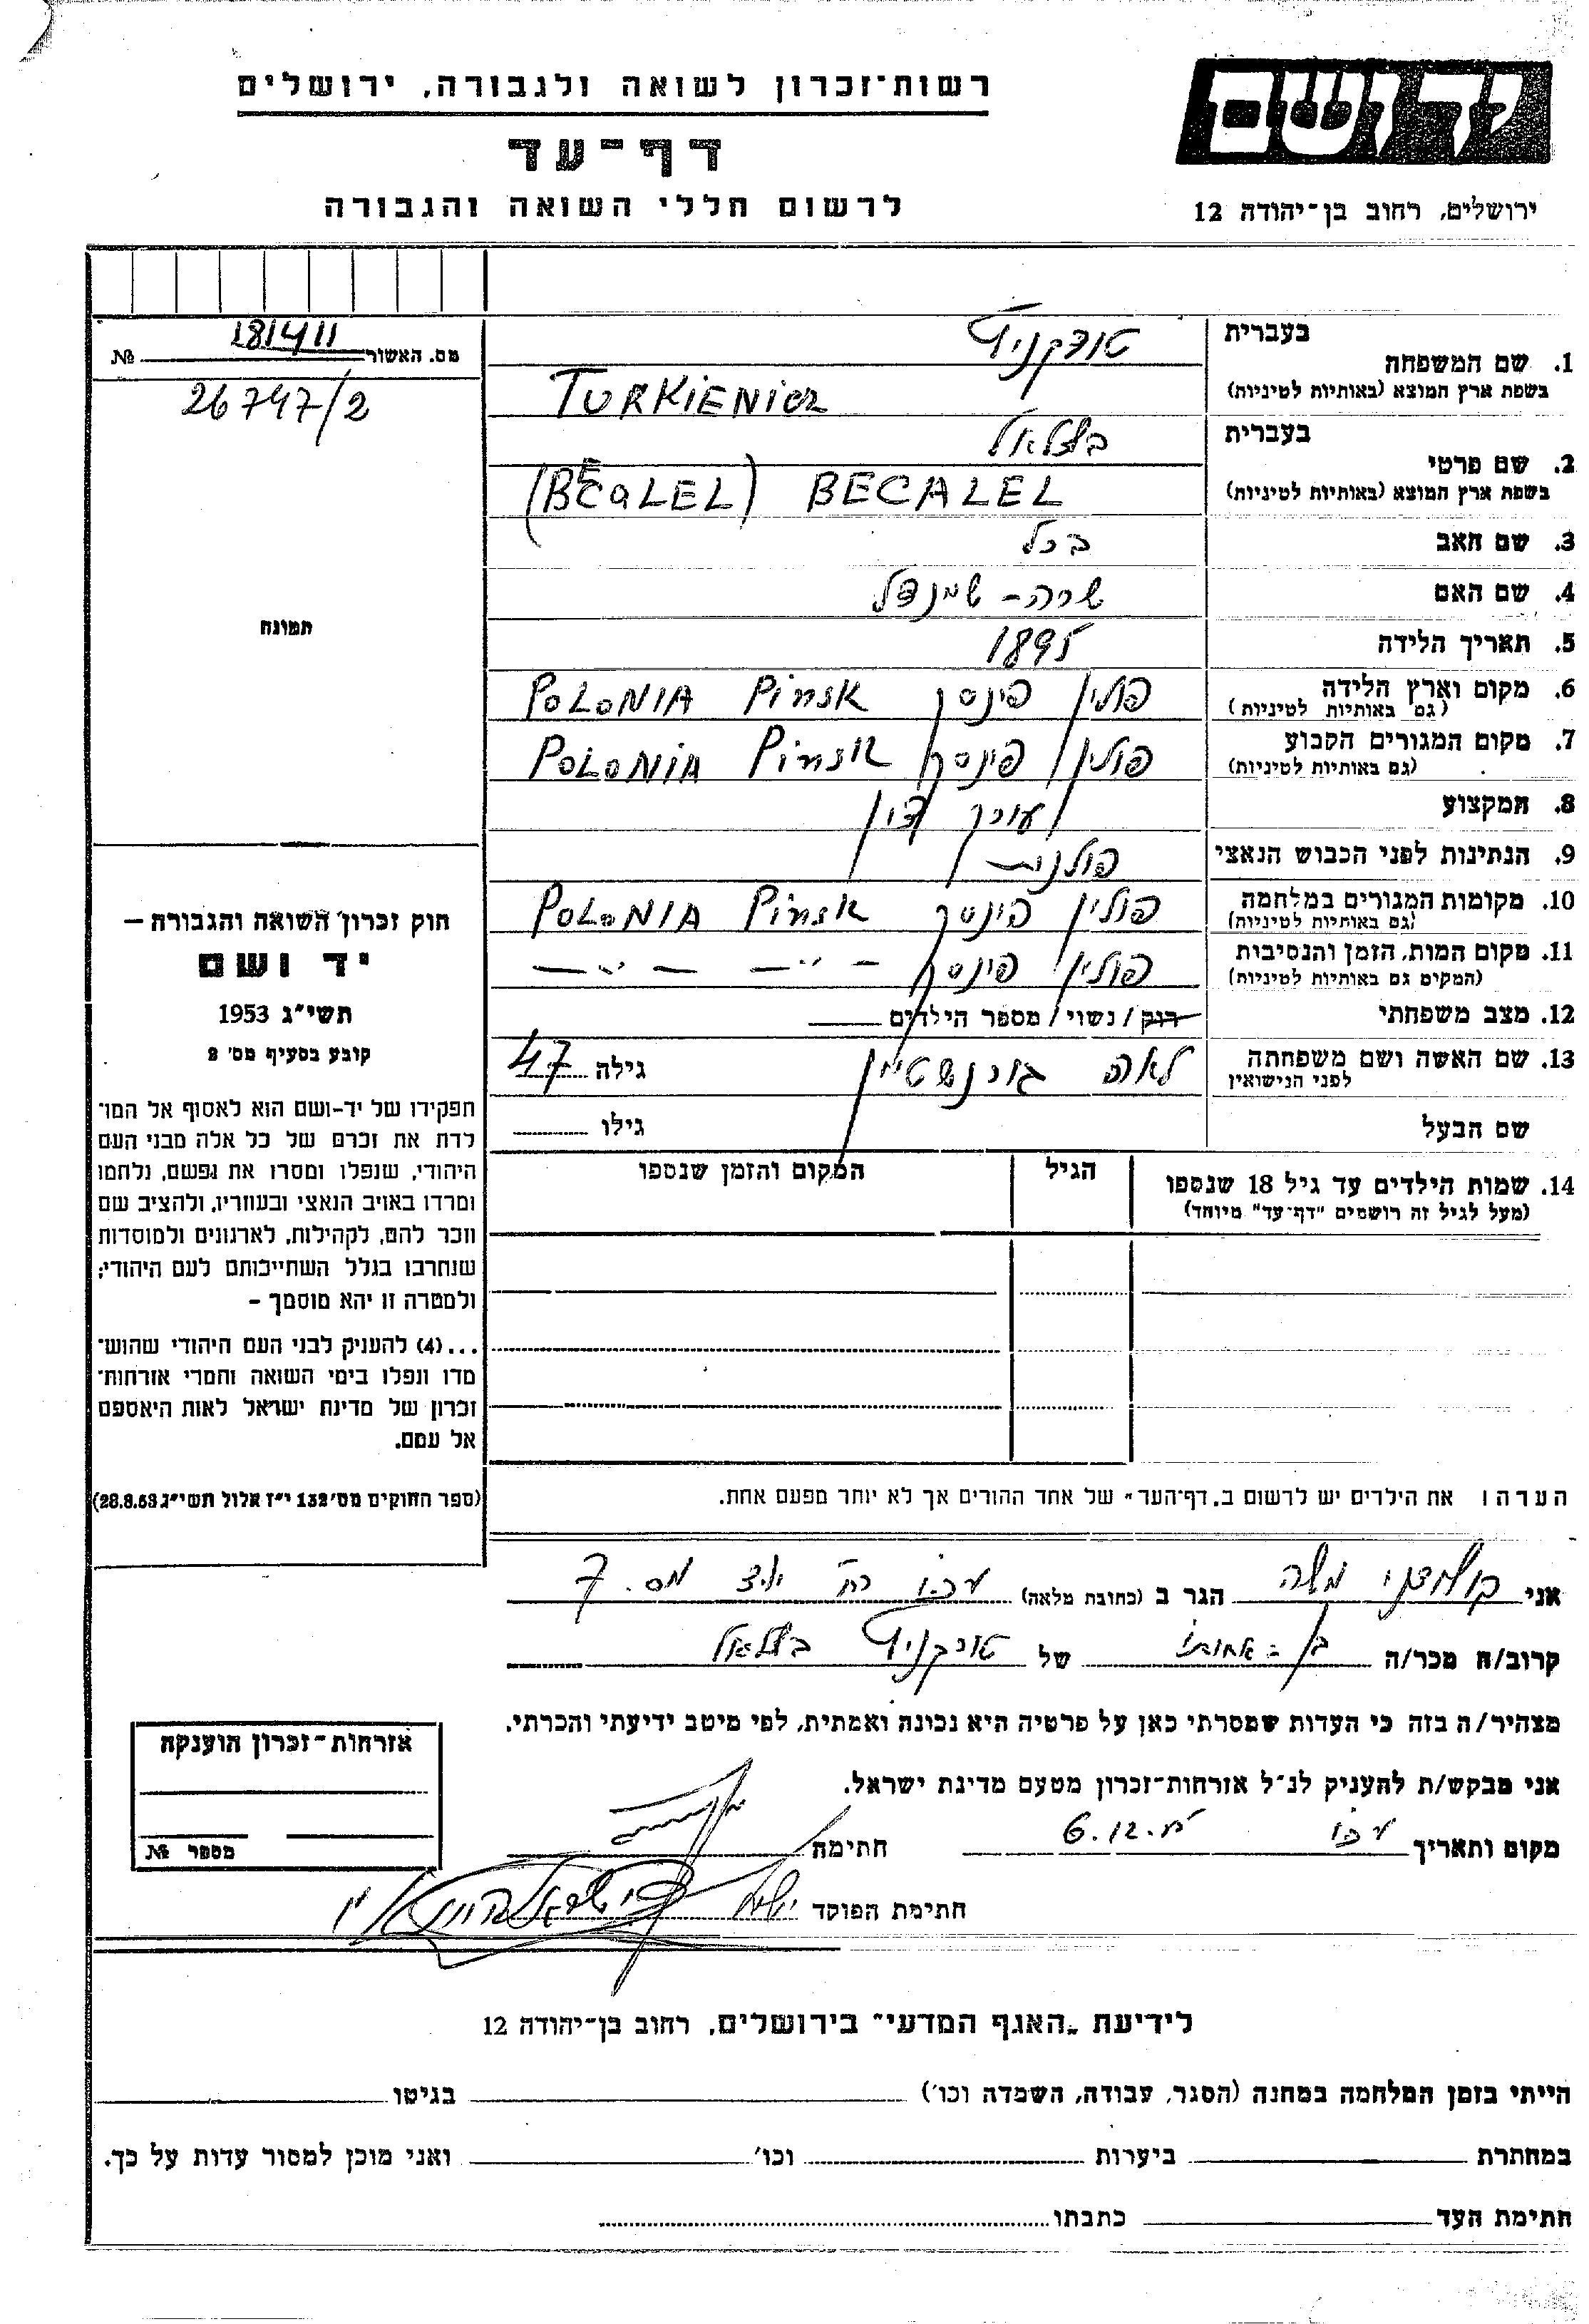 רשות־זכרון לשואה ולגבורה, ירושלים
יד ושם
דף־עד
לרשום חללי השואה והגבורה
ירושלים, רחוב בן־יהודה 12
מס. האשור 181411 №
26747/2
תמונה
בעברית
1. שם המשפחה
טורקניץ
בשפת ארץ המוצא (באותיות לטיניות)
TURKiENiCz
בעברית
2. שם פרטי
בצלאל
בשפת ארץ המוצא (באותיות לטיניות)
(BECALEL) BECALEL
3. שם האב
4. שם האם שרה־
5. תאריך הלידה 1895
6. מקום וארץ הלידה פולין פינסק Pinsk POLONIA
(גם באותיות לטיניות)
7. מקום המגורים הקבוע פולין פינסק Pinsk POLONiA
(גם באותיות לטיניות)
8. המקצוע עורך דין
9. הנתינות לפני הכבוש הנאצי פולנית
10. מקומות המגורים במלחמה פולין פינסק Pinsk POLONIA
(גם באותיות לטיניות)
11. מקום המות, הזמן והנסיבות פולין פינסק — ״ — — ״ —
(המקום גם באותיות לטיניות)
12. מצב משפחתי רווק/נשוי/מספר הילדים
13. שם האשה ושם משפחתה לאה בורנשטיין גילה 47
לפני הנישואין
שם הבעל גילו
14. שמות הילדים עד גיל 18 שנספו הגיל המקום והזמן שנספו
(מעל לגיל זה רושמים "דף־עד" מיוחד)
הערה: את הילדים יש לרשום ב„דף־העד״ של אחד ההורים אך לא יותר מפעם אחת.
חוק זכרון השואה והגבורה —
יד ושם
תשי״ג 1953
קובע בסעיף מס׳ 2
תפקידו של יד-ושם הוא לאסוף אל המו־
לדת את זכרם של כל אלה מבני העם
היהודי, שנפלו ומסרו את נפשם, נלחמו
ומרדו באויב הנאצי ובעוזריו, ולהציב שם
וזכר להם, לקהילות, לארגונים ולמוסדות
שנחרבו בגלל השתייכותם לעם היהודי;
ולמטרה זו יהא מוסמך —
...(4) להעניק לבני העם היהודי שהוש־
מדו ונפלו בימי השואה והמרי אזרחות־
זכרון של מדינת ישראל לאות היאספם
אל עמם.
(ספר החוקים מס׳ 132 י״ז אלול תשי״ג 28.8.53)
אני משה הגר ב (כתובת מלאה) עכו רח׳ מס. 7
קרוב/ה מכר/ה בן־אחותו של טורקניץ בצלאל
מצהיר/ה בזה כי העדות שמסרתי כאן על פרטיה היא נכונה ואמתית, לפי מיטב ידיעתי והכרתי.
אני מבקש/ת להעניק לנ״ל אזרחות־זכרון מטעם מדינת ישראל.
מקום ותאריך עכו 6.12. חתימה
חתימת הפוקד
אזרחות־זכרון הוענקה
מספר №
לידיעת „האגף המדעי״ בירושלים, רחוב בן־יהודה 12
הייתי בזמן המלחמה במחנה (הסגר, עבודה, השמדה וכו׳) בגיטו
במחתרת ביערות וכו׳ ואני מוכן למסור עדות על כך.
חתימת העד כתבתו